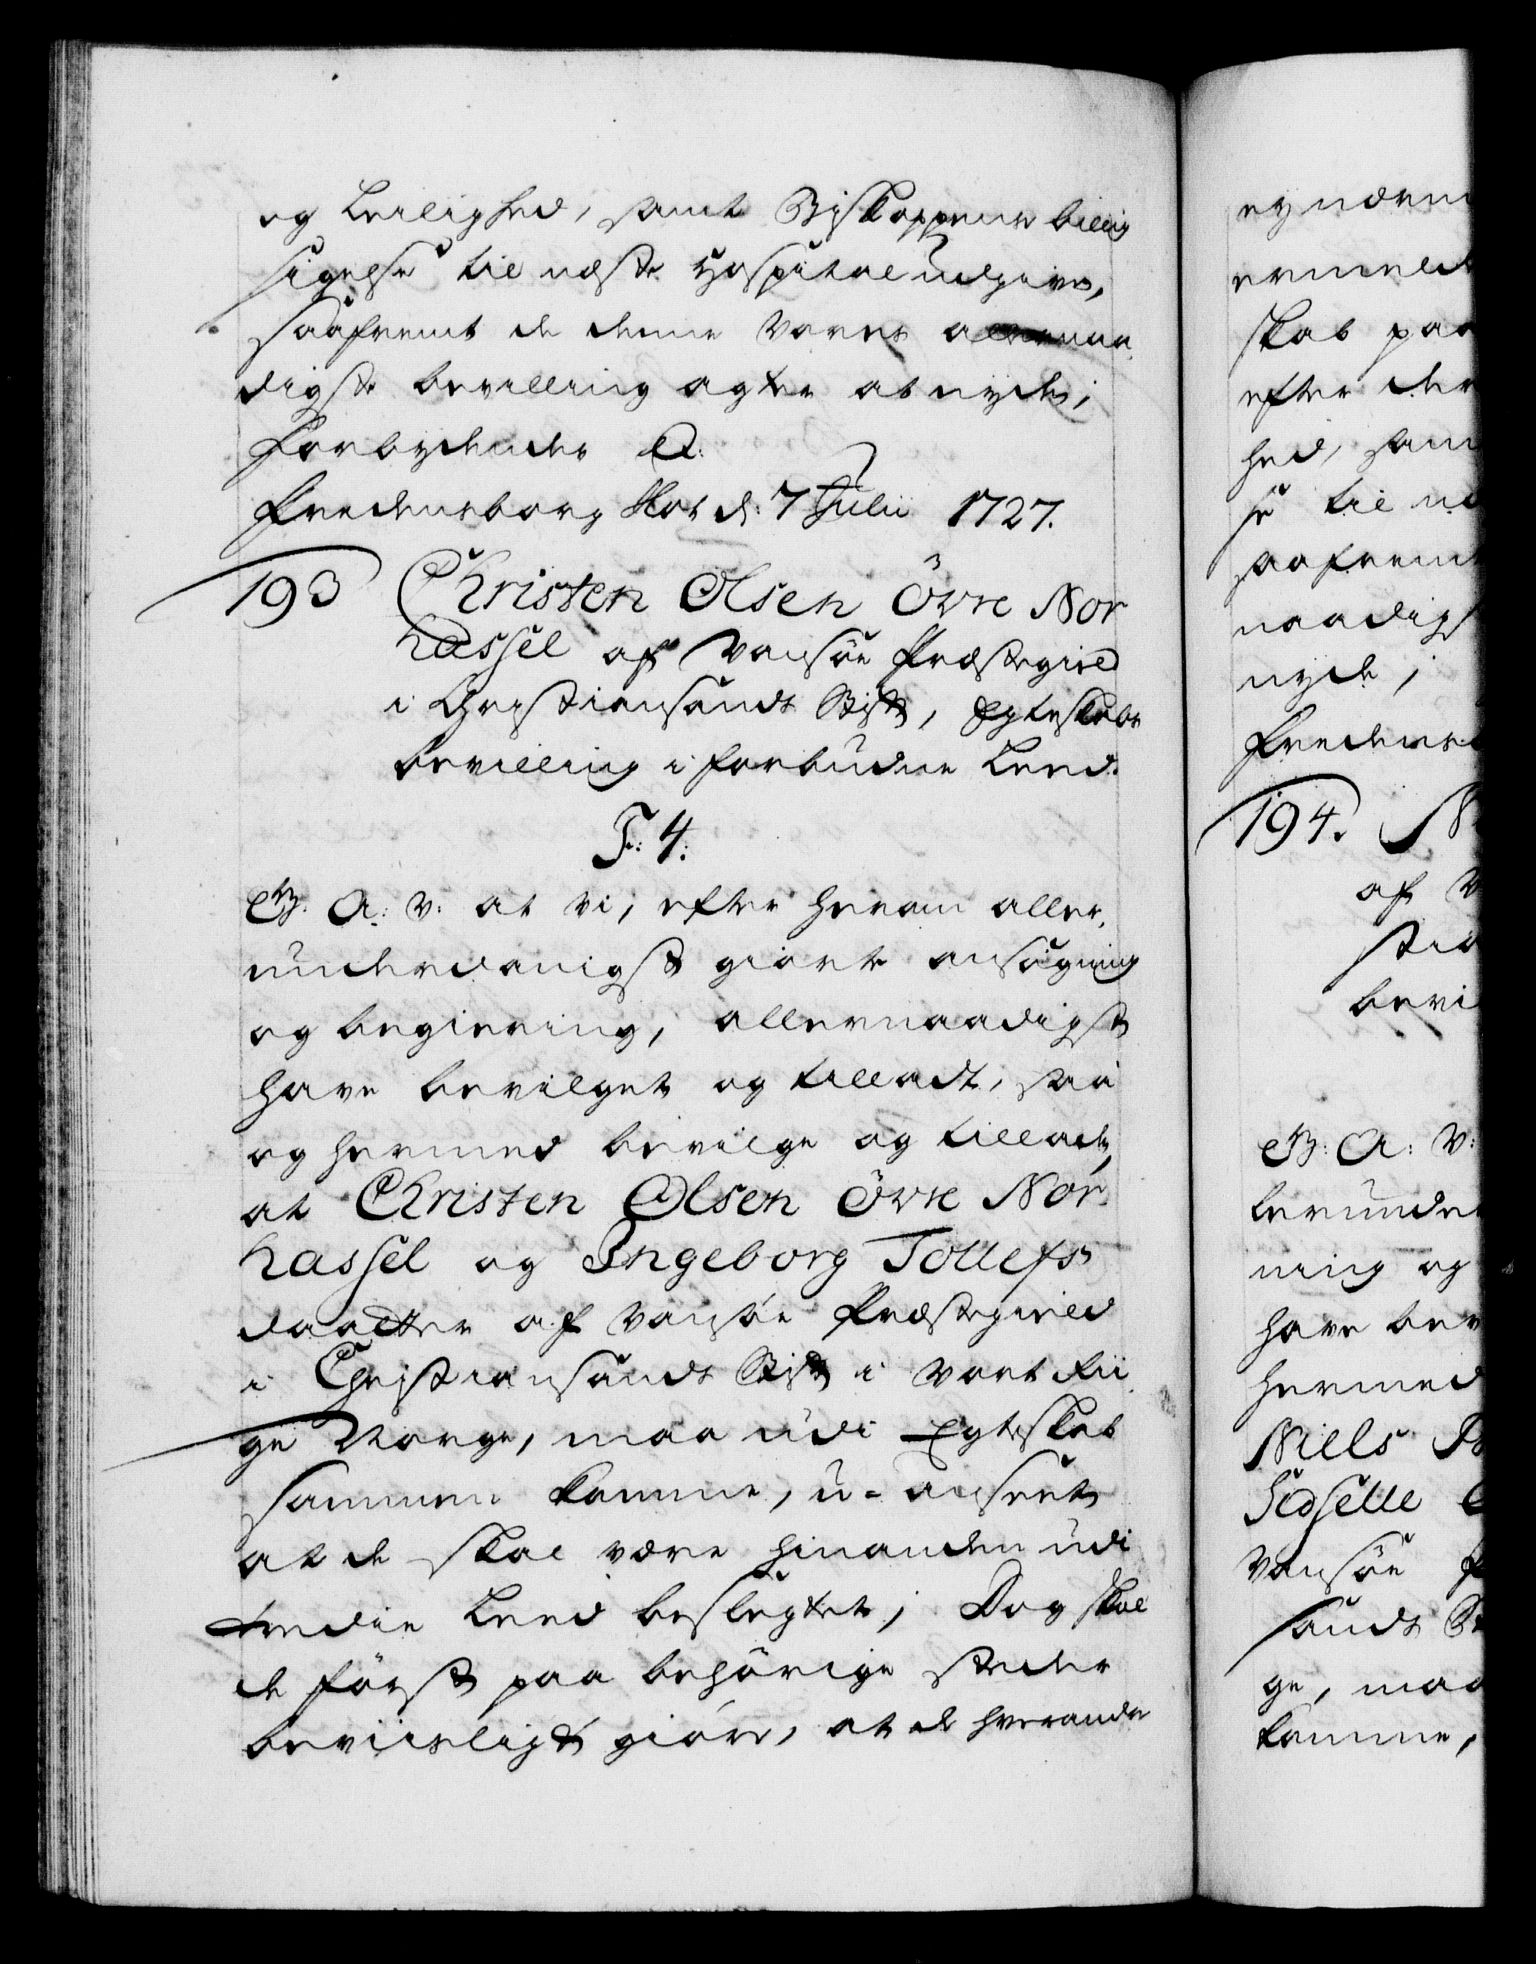 og Leilighed, samt Biskoppens billig
sigelse til næste Hospital udgive,
saafremt de denne Vores allernaa
digste bevilling agter at nyde;
Forbydendes &
Fredensborg Slot d: 7 Julii 1727.
193 Christen Olsen Övre Nor
hassel af Vansöe Præstegield
i Christiansands Stift, Egteskabs
bevilling i forbudne Leed.
F: 4.
G. A: V: at Vi, efter herom aller,
underdanigst giorte ansögning
og begiering, allernaadigst
have bevilget og tilladt, saa
og hermed bevilge og tillade,
at Christen Olsen Övre Nor
hassel og Ingeborg Tollefs
daatter af Vansöe Præstegield
i Christiansands Stift i Vort Rii
ge Norge, maa udi Egteskab
sammen komme, u-anseet
at de skal være hinanden udi
tredie Leed beslegtet; Dog skal
de först paa behörige steder
beviisligt giöre, at de hverandre
ey næerm
ermeld
skab paa
efter der
hed, sam
se til næ
saafrem
naadigs
nyde;
Fredens
194. N
af V
stia
bevi
G: A: V:
lerunder
ning og
have bev
hermed
Niels
Sidselle
Vansöe P
sands St
ge, maa
komme,